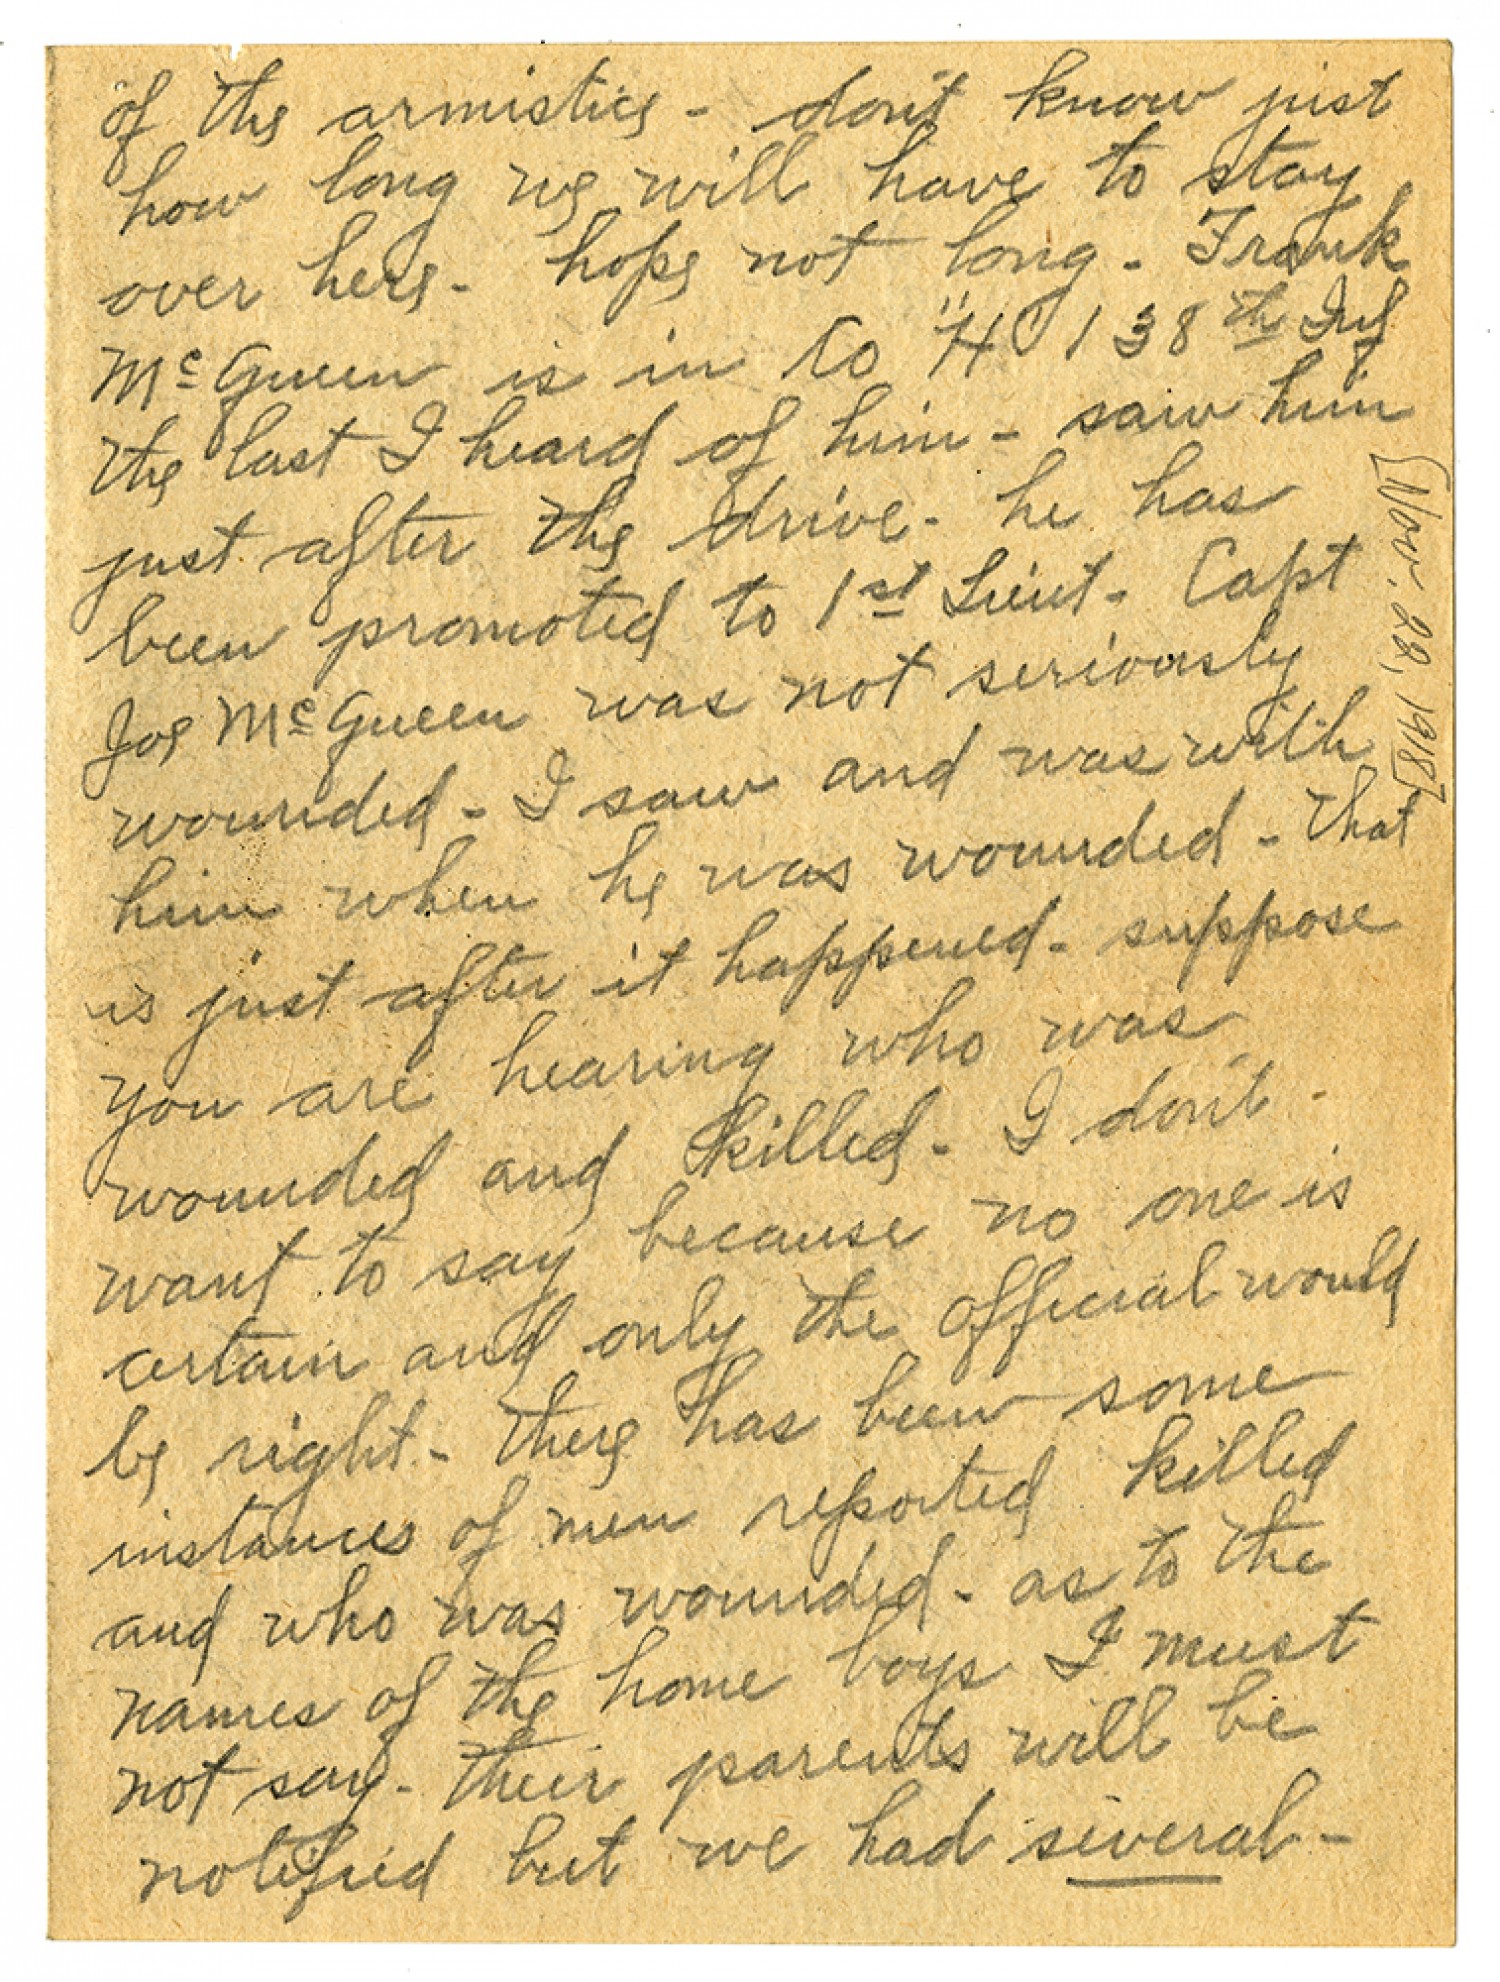 of the armistice - don't know just
how long we will have to stay
over here - hope not long - Frank
McQueen is in Co "H" 138th Inf
the last I heard of him - saw him
just after the drive - he has
been promoted to 1st Lieut - Capt
Joe McQueen was not seriously
wounded - I saw and was with
him when he was wounded - that
is just after it happened - suppose
you are hearing who was
wounded and killed - I don't -
want to say because no one is
certain and only the official would
be right - there has been some
instances of men reported killed
and who was wounded - as to the
names of the home boys I must
not say - their parents will be
notified but we had several -
[Nov. 22, 1918]